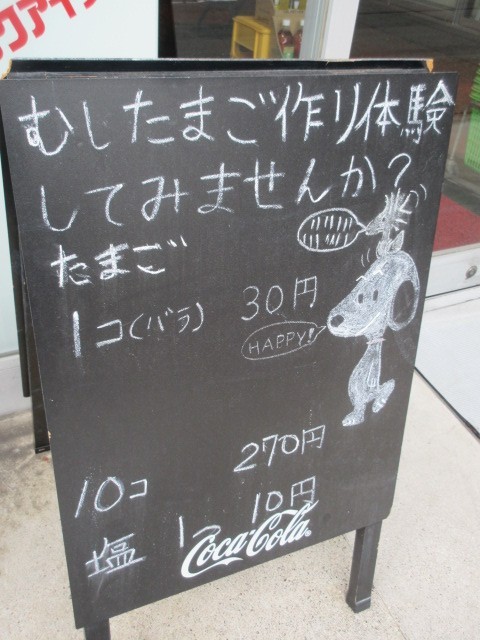 クアイ
むしたまご作り体験
してみませんか?
たまご
1コ(バラ) 30円
HAPPY!
10コ 270円
塩 1コ 10円
Coca-Cola